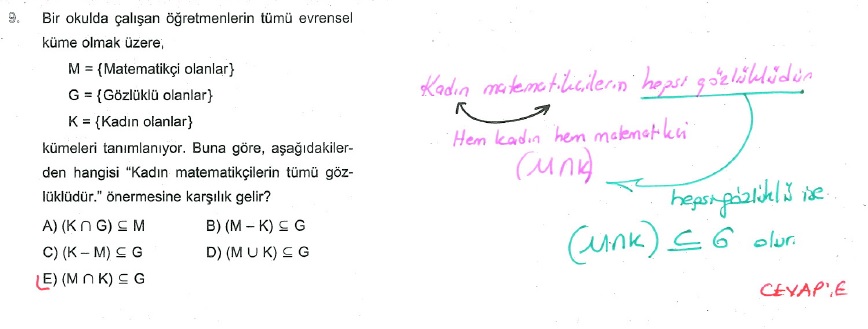 9. Bir okulda çalışan öğretmenlerin tümü evrensel
küme olmak üzere,
M = {Matematikçi olanlar}
G = {Gözlüklü olanlar}
K = {Kadın olanlar}
kümeleri tanımlanıyor. Buna göre, aşağıdakiler-
den hangisi “Kadın matematikçilerin tümü göz-
lüklüdür.” önermesine karşılık gelir?
A) (K ∩ G) ⊆ M B) (M – K) ⊆ G
C) (K – M) ⊆ G D) (M ∪ K) ⊆ G
E) (M ∩ K) ⊆ G
Kadın matematikçilerin hepsi gözlüklüdür
Hem kadın hem matematikçi
(M∩K)
hepsi gözlüklü ise
(M∩K) ⊆ G olur.
CEVAP: E